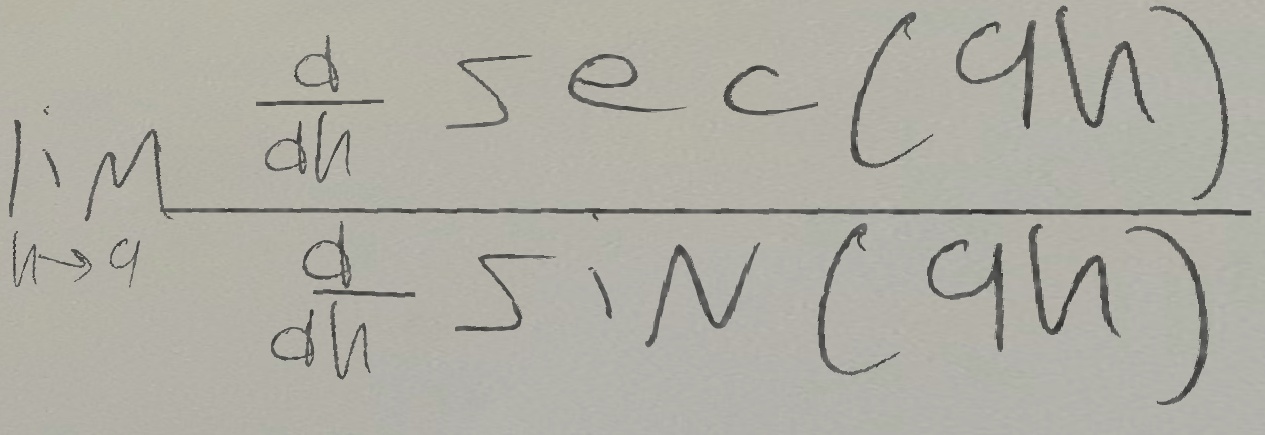 \lim_{h \to 9} \frac{\frac{d}{dh} \sec(9h)}{\frac{d}{dh} \sin(9h)}